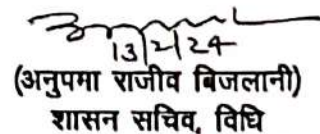 13/2/24
(अनुपमा राजीव बिजलानी)
शासन सचिव, विधि